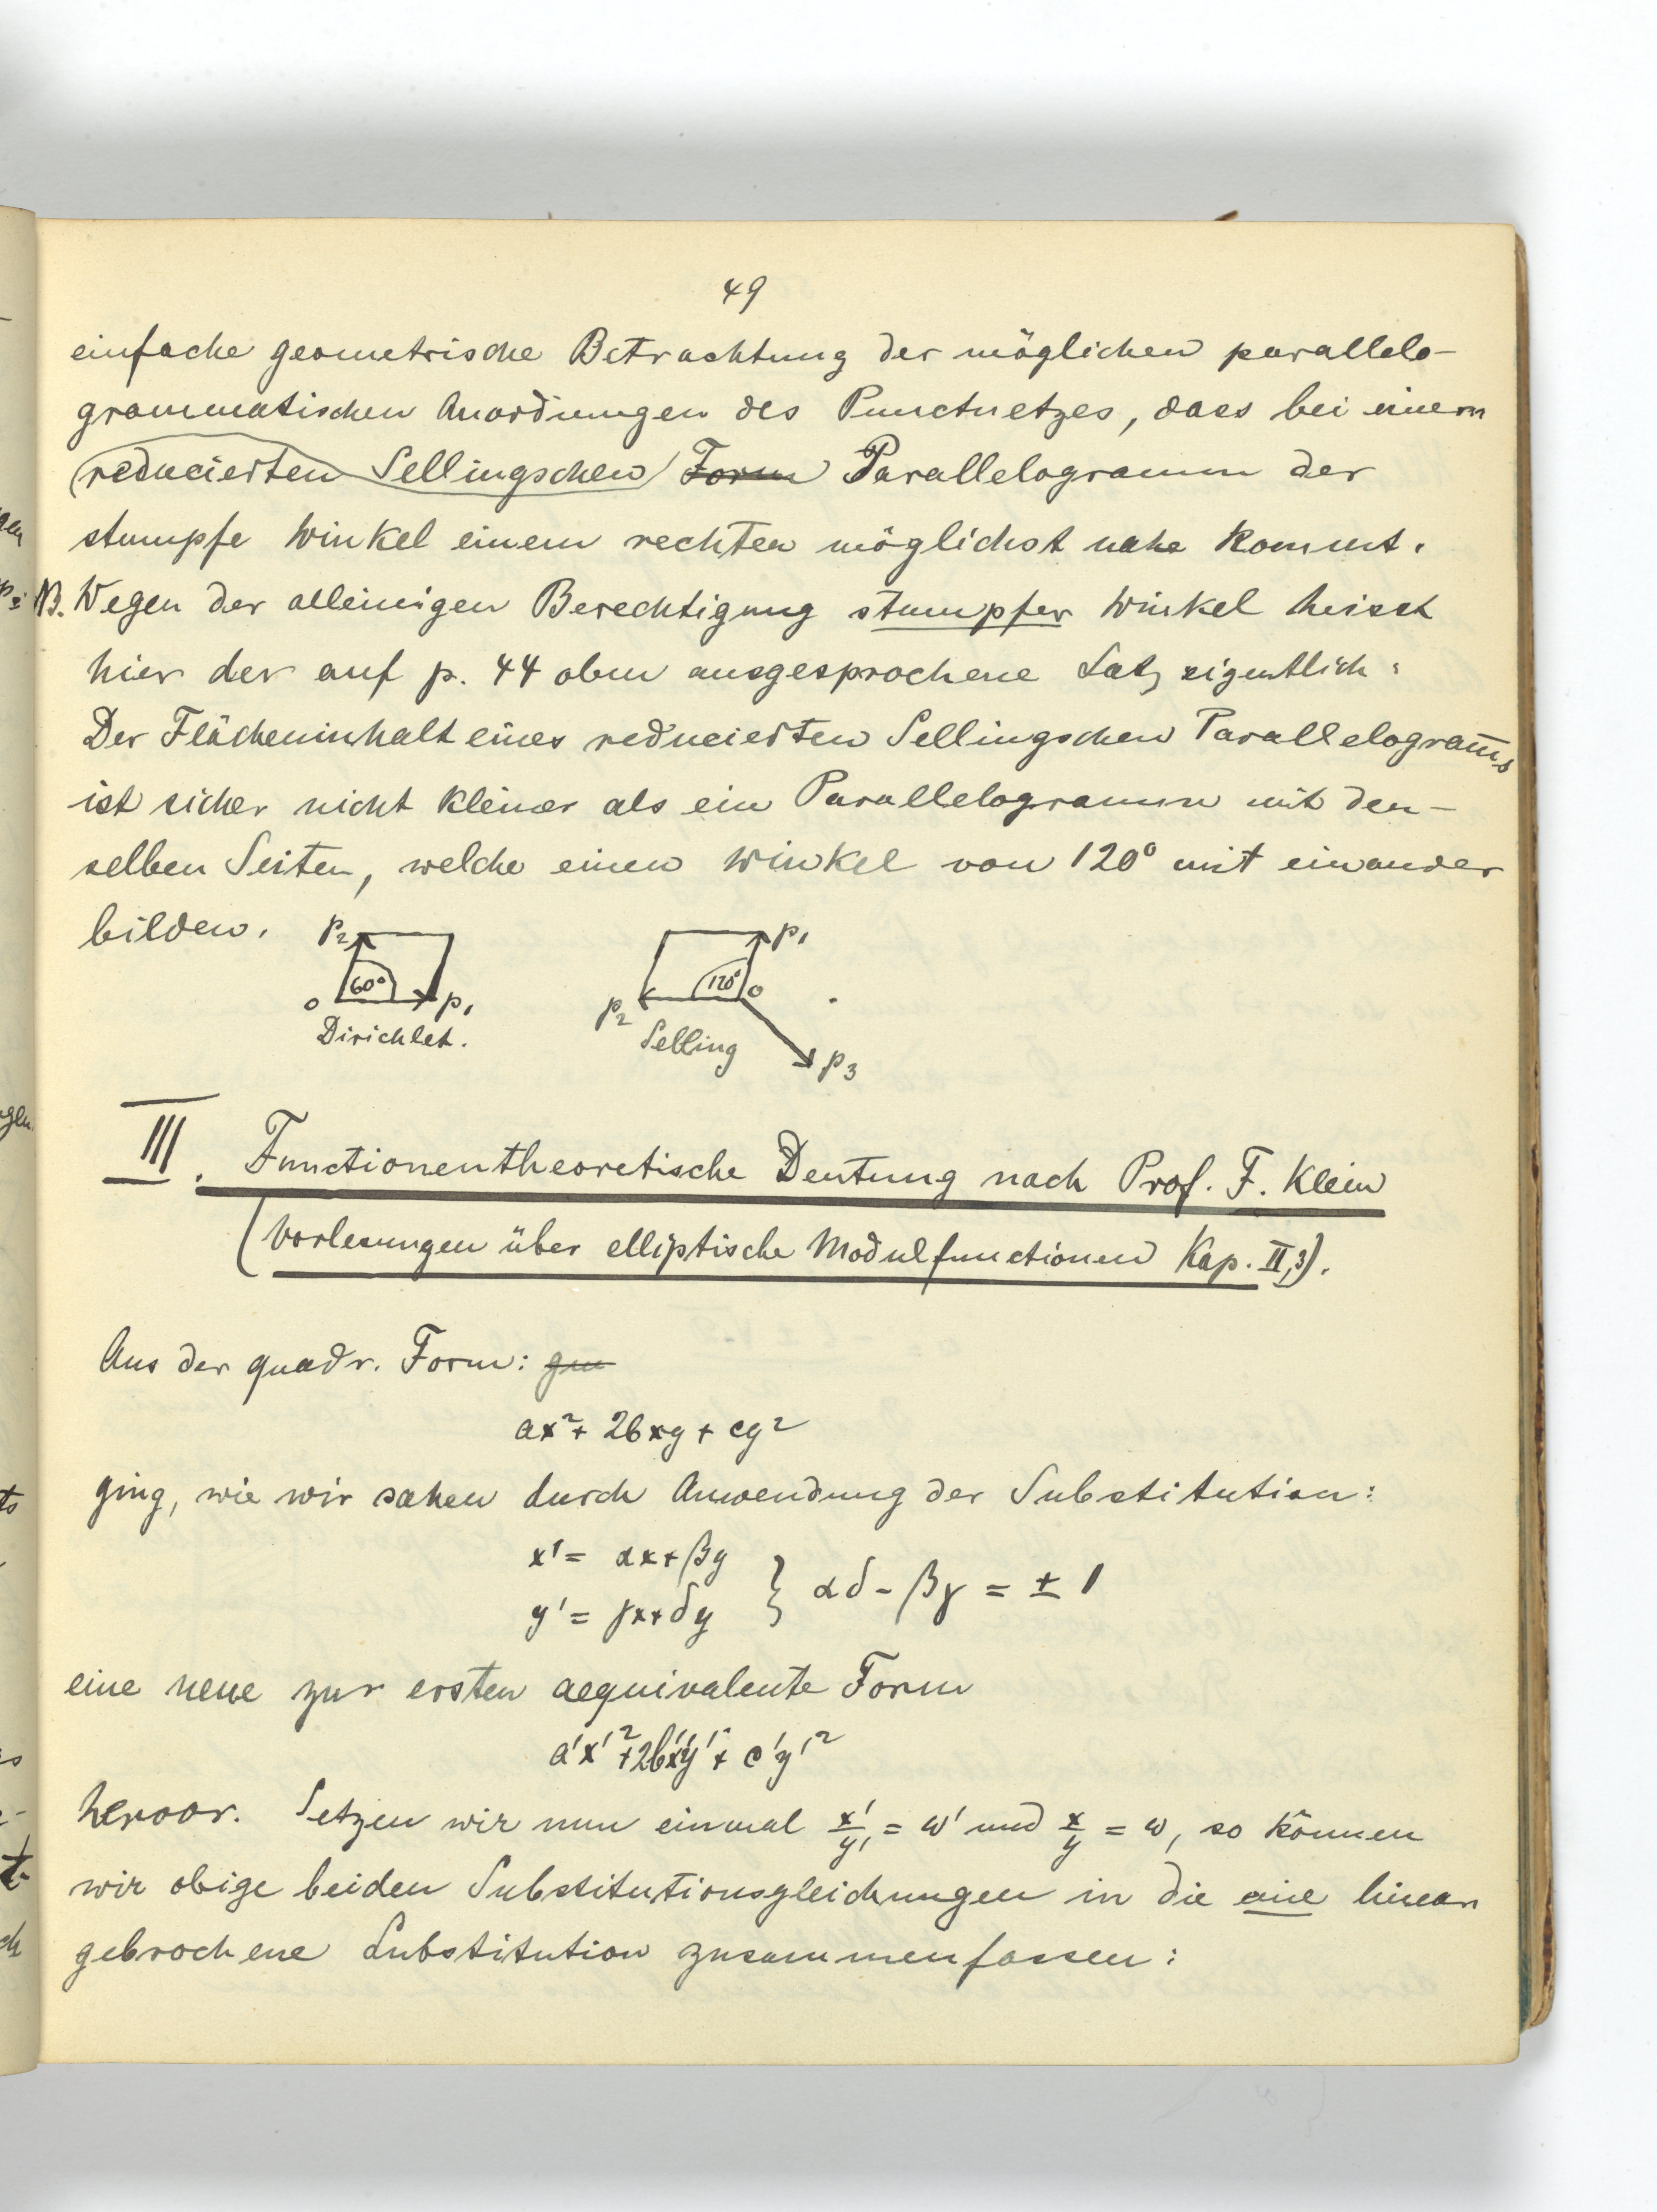 49
einfache geometrische Betrachtung der möglichen parallelo-
grammatischen Anordnungen des Punctnetzes, dass bei einem
(reducierten Sellingschen) Form Parallelogramm der
stumpfe Winkel einem rechten möglichst nahe kommt.
NB. Wegen der alleinigen Berechtigung stumpfer Winkel heisst
hier der auf p. 44 oben ausgesprochene Satz eigentlich:
Der Flächeninhalt eines reducierten Sellingschen Parallelogram̅s
ist sicher nicht kleiner als ein Parallelogramm mit den-
selben Seiten, welche einen Winkel von 120° mit einander
bilden.
p₂ 60° o p₁
Dirichlet.
p₁ 120° o p₂
Selling
p₃
III. Functionentheoretische Deutung nach Prof. F. Klein
(Vorlesungen über elliptische Modulfunctionen Kap. II,3).
Aus der quadr. Form:
ax² + 2bxy + cy²
ging, wie wir sahen durch Anwendung der Substitution:
x' = αx + βy
y' = γx + δy } αδ - βγ = ± 1
eine neue zur ersten aequivalente Form
a'x'² + 2b'x'y' + c'y'²
hervor. Setzen wir nun einmal x'/y' = ω' und x/y = ω, so können
wir obige beiden Substitutionsgleichungen in die eine linear
gebrochene Substitution zusammenfassen: